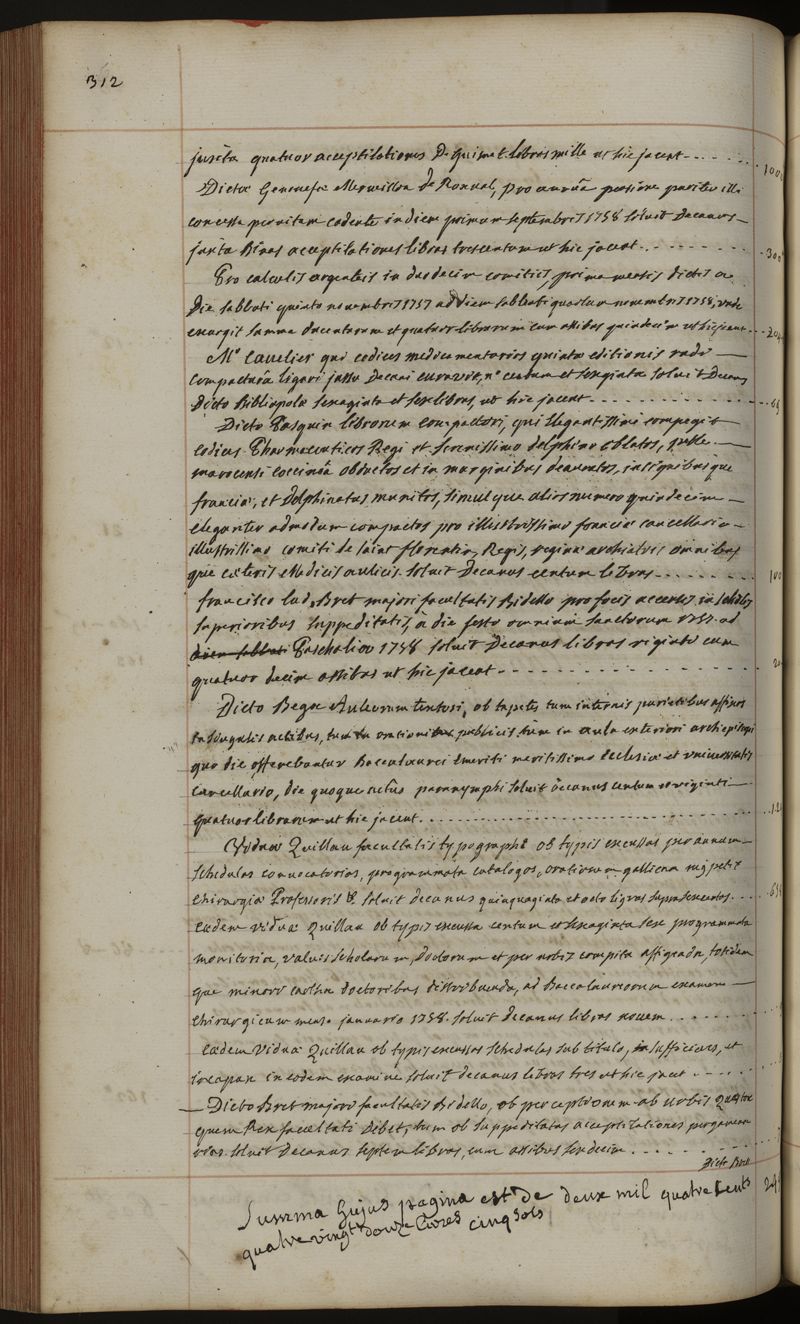 312
juxta quatuor acceptilationes D. Guimet libras mille ut hic jacent 100
Dictæ Genovefæ Merveillon de Ronval, pro annuâ pensione pariter illi
concessa pernitem cadente in diem primum septembris 1758 soluit Decanus
juxta binas acceptilationes libras trescentum ut hic jacent 300
Pro calculis argenteis in duodecim comitiis, prima mensis dictis a
die sabbati quinto novembris 1757 ad diem sabbati quartum novembris 1758, unde
exurgit summa ducentarum et quatuor librarum cum assibus quindecim ut hic jacent 204
Mo Cavelier qui codices medicamentarios quintæ editionis rudi
compacturâ ligari jussu Decani curavit, no centum et sexginta soluit Decanus
Dicto Bibliopolæ sexaginta et sex libras, ut hic jacent 66
Dicto Pasquier librorum compactori, qui elegantissime compegit
codices Pharmaceuticos Regi et Serenissimo delphino oblatos, pelle
marocensi coccineâ obductos et in marginibus deauratos, insignibusque
franciæ, et Delphinatus munitos, simulque alios numero quindecim
eleganter admodum compactos pro illustrissimo franciæ cancellario
illustrissimo comiti de saint florentin, Regis, reginæ archiatris omnibus
que cæteris Medicis aulicis. soluit Decanus centum libras 100
francisco lud. Bret majori facultatis Bidello pro focis accensis in scholis
superioribus suppeditatis, à die festo omnium sanctorum 1757. ad
Paschalion 1758 soluit Decanus libras viginti cum
quatuor decim assibus ut hic jacent 20
Dicto Bega Aulæorum tentori, ob tapetes tum internis parietibus affixos
in singulis actibus, tum in orationibus publicis tum in aula exteriori archiepiscopi
quo die offerebantur Baccalaurei Emeriti meritissimo Ecclesiæ et universitatis
Cancellario, die quoque actûs paranymphi soluit Decanus centum et viginti
quatuor librarum ut hic jacent 12
Viduæ Quillau facultatis typographi ob typis excussas per annum
schedulas convocatorias, programmata catalogos, orationem gallicam mgi petit
chirurgiæ Professoris & soluit decanus quinquaginta et octo libras suprasexcentas 658
Eadem viduæ Quillau ob typis excussa centum et sexaginta sex programmata
monitoria, valvis scholarum, Doctorum et per urbis compita affigenda, totidem
que minori charta doctoribus distribuenda, ad Baccalaureorum examen
Chirurgicum mense januario 1758. soluit decanus libras novem
Eadem Viduæ Quillau ob typis excussas schedulas sub titulo, insufficiens, et
incapax in eodem examine soluit decanus libras tres ut hic jacent
Dicto Bret majori facultatis Bidello, ob perceptionem ab urbis Quæstore
quem Rex facultati Debet, tum ob suppeditatas acceptilationes pergamen
soluit Decanus septem libras, cum assibus sexdecim
Dicto Bret
Summa hujus pagina est de deux mil quatre Cents 24
quatre vingt douze Livres cinq Sols